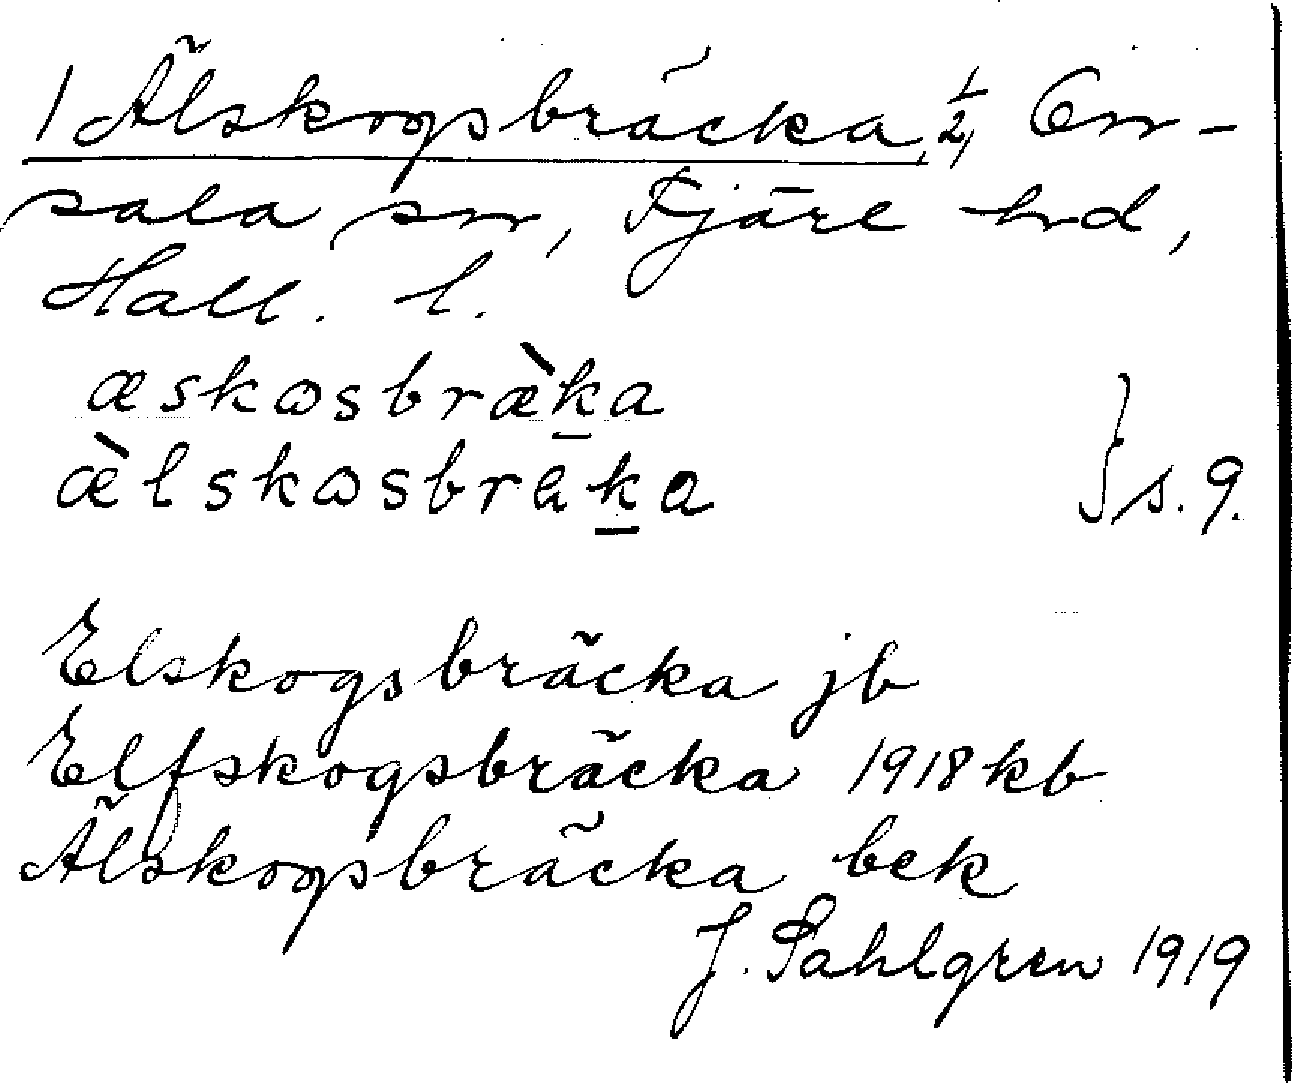 1 Älskogsbräcka, 1/2, Onn-
sala sn, Fjäre hd,
Hall. l.
æskɷsbræ̀ka
æ̀lskɷsbræka } s. 9.
Elskogsbräcka jb
Elfskogsbräcka 1918 kb
Älskogsbräcka bek
J. Sahlgren 1919